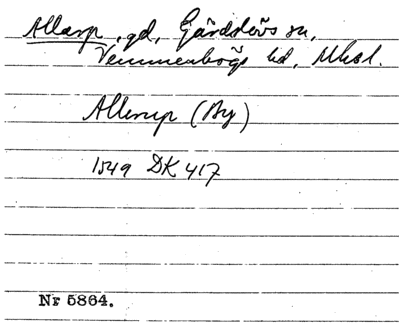 Allarp, gd, Gärdslövs sn,
Vemmenhögs hd, Mhsl.
Allerup (By)
1549 DK 417
Nr 5864.